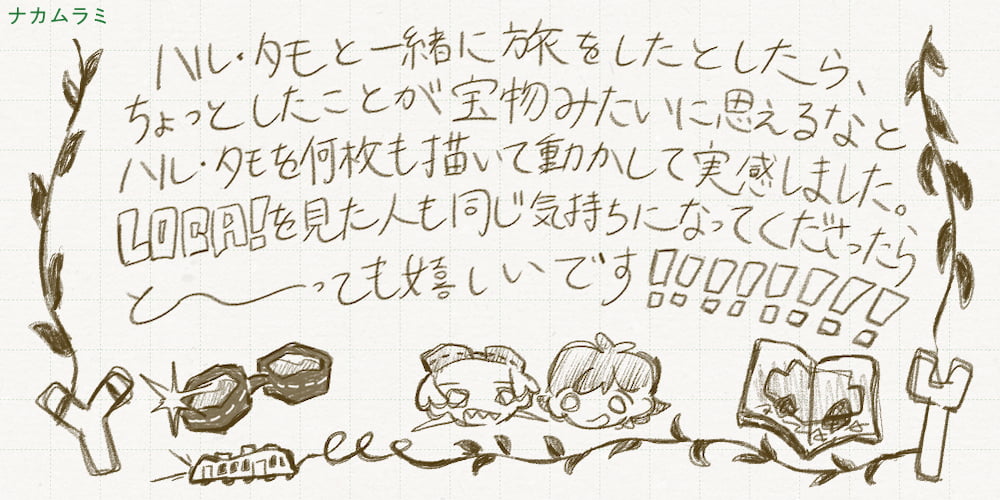 ナカムラミ
ハル・タモと一緒に旅をしたとしたら、
ちょっとしたことが宝物みたいに思えるなと
ハル・タモを何枚も描いて動かして実感しました。
LOCA!を見た人も同じ気持ちになってくださったら
と〜っても嬉しいです!!!!!!!!